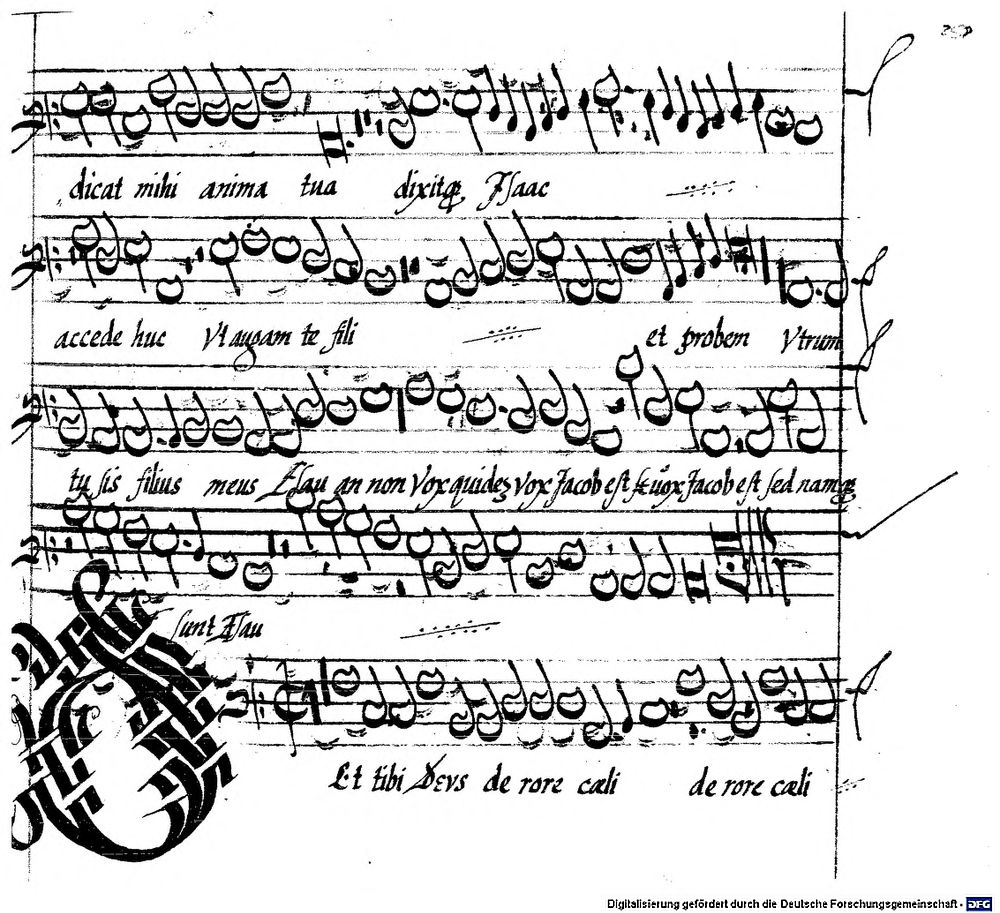 dicat mihi anima tua dixitq Isaac
accede huc Vt angam te fili et probem Vtrum
tu sis filius meus Esau an non Vox quidez vox Jacob est vox Jacob est sed namq
sunt Esau
Et tibi Deus de rore cæli de rore cæli
Digitalisierung gefördert durch die Deutsche Forschungsgemeinschaft - DFG